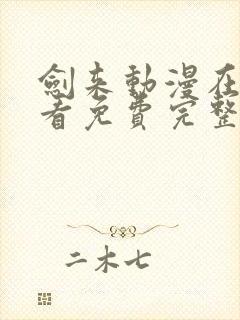 劍来動漫在
看免費完整
二木七